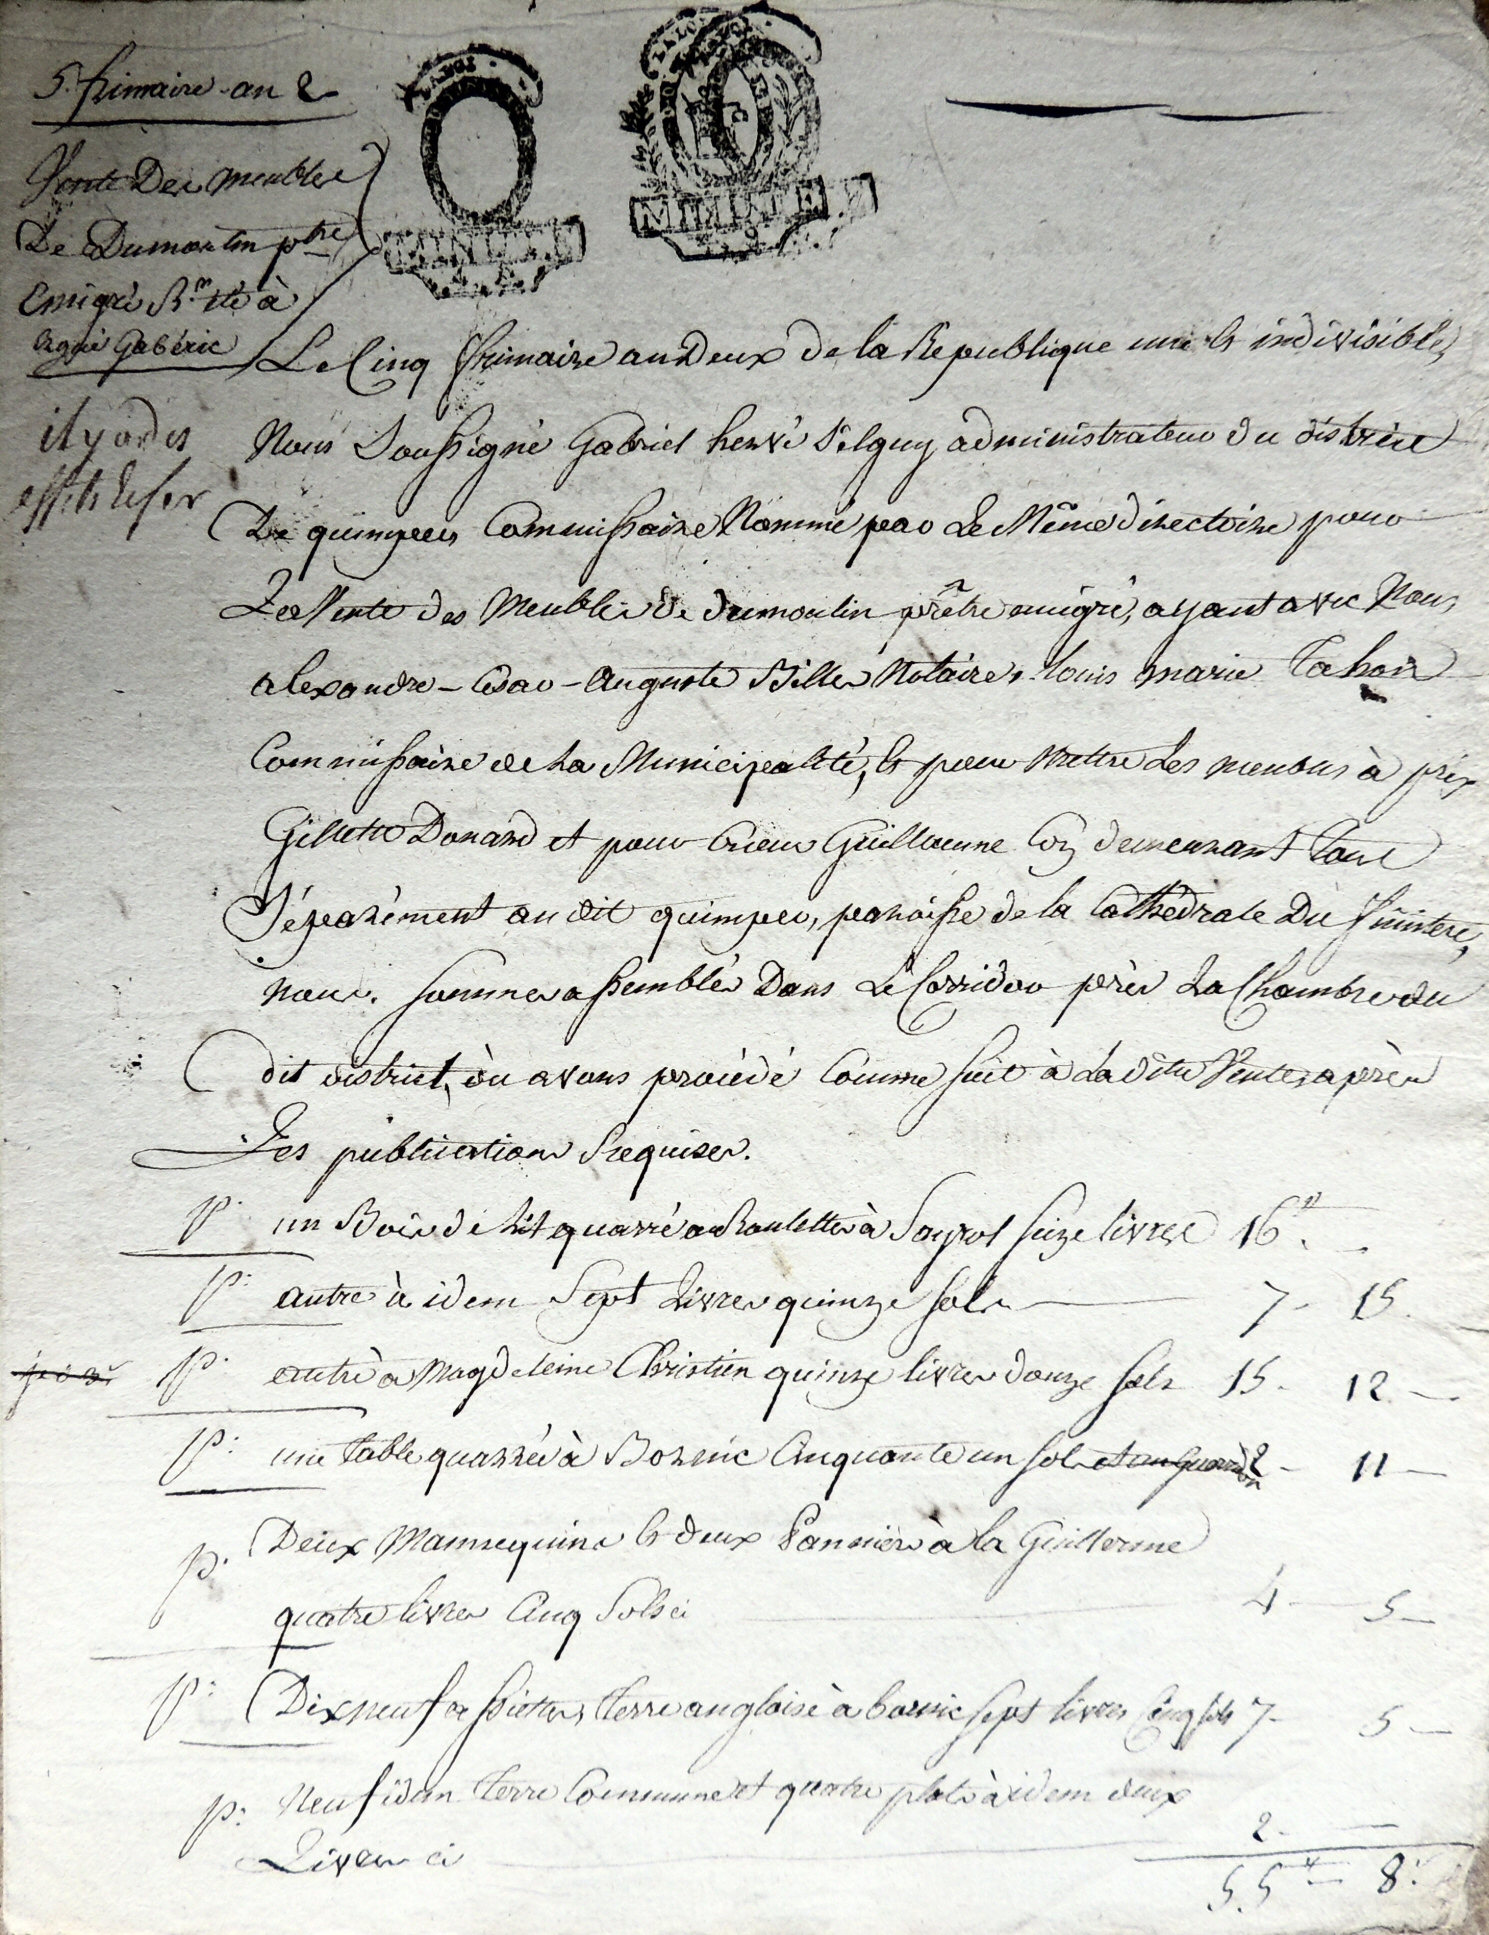 5. frimaire an 2
Vente Des meubles
De Dumoulin ptre
Emigré
ergué Gabéric
il y a des
effets
MINUTE
MINUTE
Le Cinq frimaire an Deux de la Republique une et indivisible,
Nous Soussigné Gabriel hervé Pelguy administrateur du district
De quimper, Commissaire Nommé par Le Même directoire pour
La Vente des Meubles de dumoulin prêtre emigré, ayant avec Nous
alexandre - Cesar - Auguste Bille Notaire, louis marie
Commissaire de La Municipalité, et pour Mettre Les meubles à prix
Gillette Donard et pour Crieur Guillaume Coz demeurant tous
Séparément au dit quimper, paroisse de la Cathédrale Du finistere,
nous sommes assemblés Dans Le Corridor près La Chambre du
dit district, où avons procédé Comme suit à La dite Vente, après
Les publications Requises.
p. un Bois de Lit quarré a Roulettes à Seize livres 16 "
p. autre à idem Sept Livres quinze sols 7 - 15
p. autre à Magdeleine Christien quinze livres douze sols 15 - 12 -
p. une table quarrée à Borgnic Cinquante un sols 2 - 11 -
p. Deux Mannequins et deux Panniers à la Guillerme
quatre livres Cinq Sols ci 4 - 5 -
p. Dix neuf assiettes, terre angloise à sept livres Cinq sols 7 - 5 -
p. Neuf idem terre Commune et quatre plats à idem deux
Livres ci 2. -
55 8